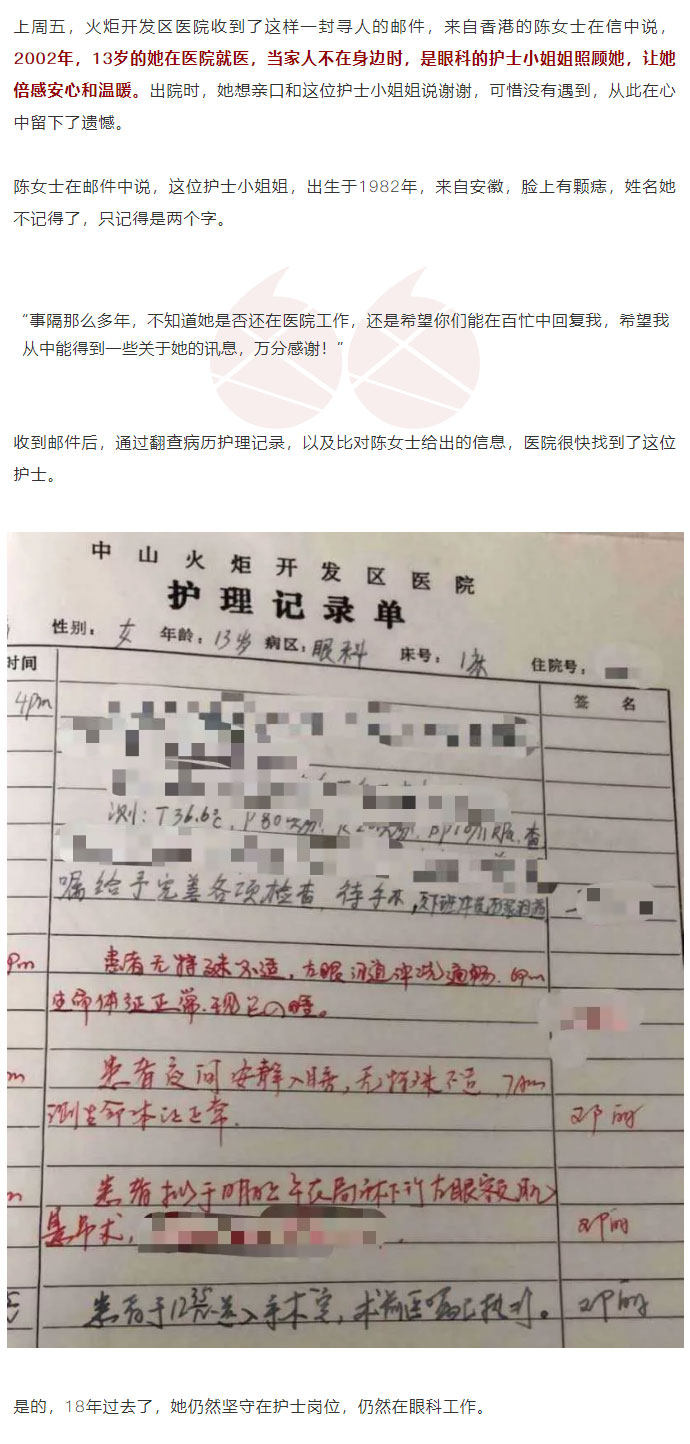 上周五，火炬开发区医院收到了这样一封寻人的邮件，来自香港的陈女士在信中说，
2002年，13岁的她在医院就医，当家人不在身边时，是眼科的护士小姐姐照顾她，让她
倍感安心和温暖。出院时，她想亲口和这位护士小姐姐说谢谢，可惜没有遇到，从此在心
中留下了遗憾。
陈女士在邮件中说，这位护士小姐姐，出生于1982年，来自安徽，脸上有颗痣，姓名她
不记得了，只记得是两个字。
“事隔那么多年，不知道她是否还在医院工作，还是希望你们能在百忙中回复我，希望我
从中能得到一些关于她的讯息，万分感谢！”
收到邮件后，通过翻查病历护理记录，以及比对陈女士给出的信息，医院很快找到了这位
护士。
中山火炬开发区医院
护理记录单
性别：女 年龄：13岁 病区：眼科 床号：1床 住院号：
时间 签名
4pm
测：T36.6℃，P80次/分，
查
嘱给予完善各项检查，待手术，
pm 患者无特殊不适，左眼泪道冲洗通畅，
生命体征正常，现已入睡。
m 患者夜间安静入睡，无特殊不适，7Am
测生命体征正常。 邓
患者拟于明日上午在局麻下行左眼额肌
悬吊术， 邓
患者于12 35 送入手术室，术前医嘱已执行。 邓
是的，18年过去了，她仍然坚守在护士岗位，仍然在眼科工作。